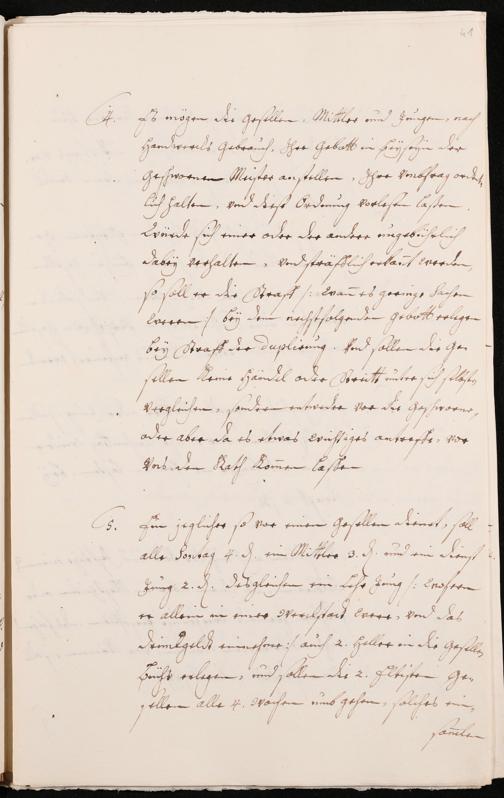 41
4. Es mögen die Gesellen, Mittler und Jungen, nach
Handwercks Gebrauch, Ihre Gebott in beysein der
Geschwornen Meister anstellen, Ihre Umbfrag ordent-
lich halten, und diese Ordnung vorlesen lassen.
Würde sich einer oder der ander ungebührlich
dabey verhalten, und sträfflich erkant werden,
so soll er die Straff /: wann es geringe sachen
weren :/ bey dem nechstfolgenden gebott erlegen
bey Straff der Duplirung. Und sollen die Ge-
sellen keine Händel oder Streitt unter sich selbst
vergleichen, sondern entweder vor die Geschworne,
oder aber da es etwas wichtiges antreffe, vor
Uns den Rath kommen lassen
5. Ein jeglicher so vor einen Gesellen dienet, soll
alle Sontag 4. d. ein Mittler 3. d. und ein
Jung 2. d. desgleichen ein Lehr Jung /: wofern
er allein in einer werckstatt were, und das
trinckgeldt einnehme :/ auch 2. Heller in die Gesellen
Büchs erlegen, und sollen die 2. Eltisten Ge-
sellen alle 4. Wochen umbgehen, solches ein-
samlen